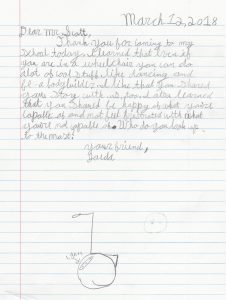 March 12, 2018
Dear Mr. Scott,
Thank you for coming to my
school today. I learned that even if
you are in a wheelchair you can do
alot of cool stuff like dancing and
be a bodybuilder. I like that you shared
your story with us, and I also learned
that you should be happy of what you're
capable of and not feel frustrated with what
you're not capable of. Who do you look up
to the most?
your friend,